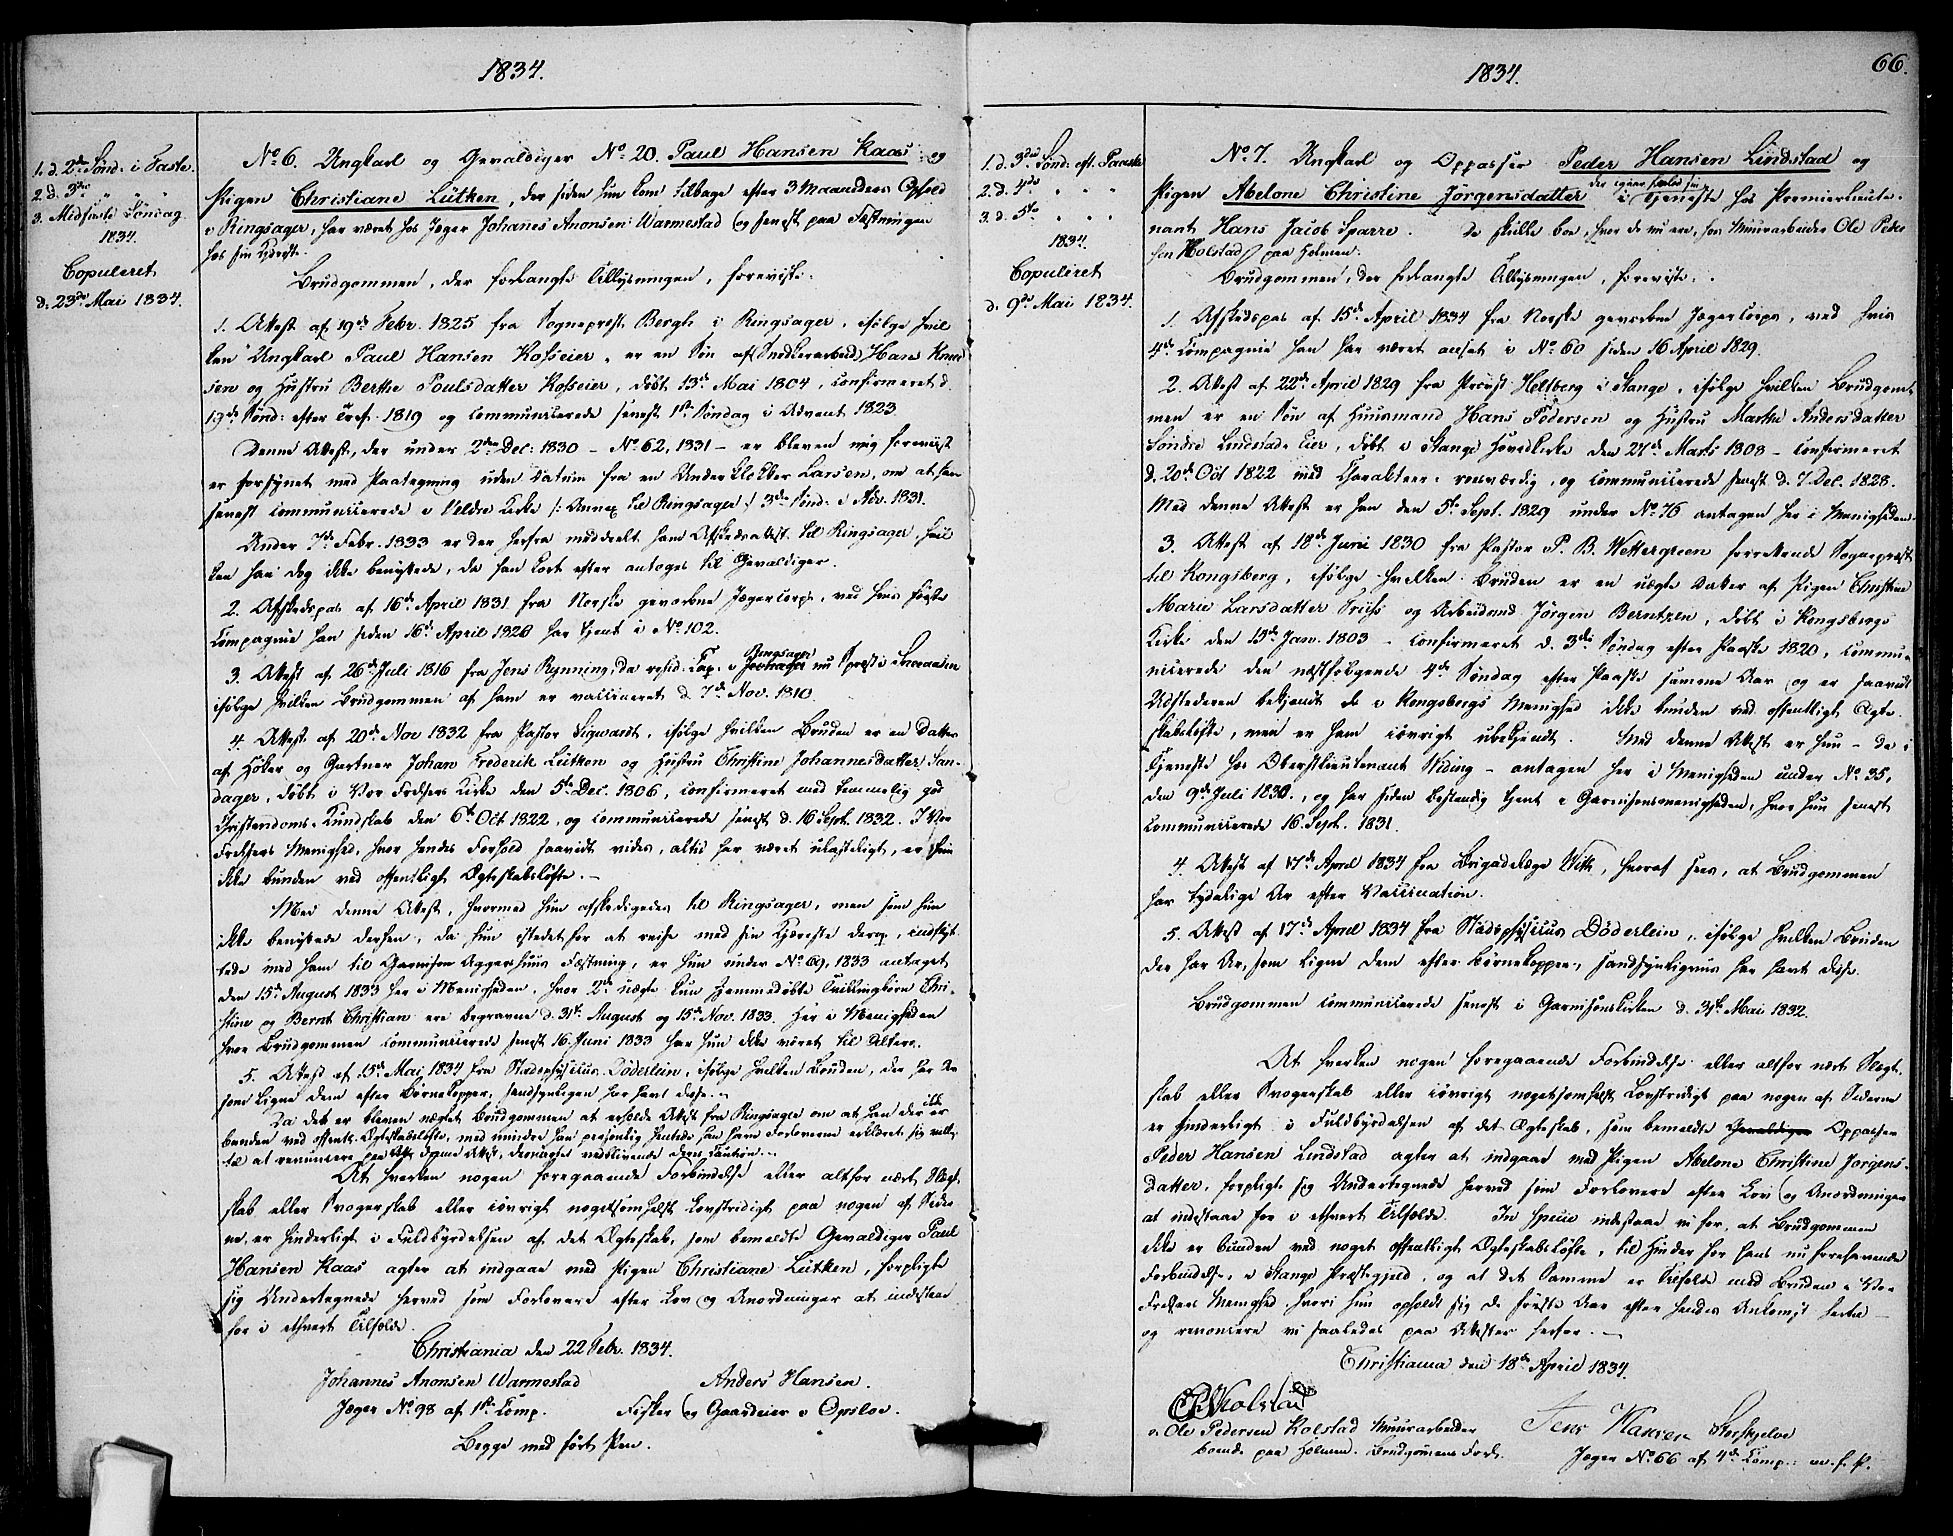 1834.
1. d. 2den Sønd. i Faste.
2. d. 3die „ „ „
3. Midfaste Søndag
1834.
Copuleret
d. 23de Mai 1834.
No 6. Ungkarl og Gevaldiger No 20. Paul Hansen Kaas og
Pigen Christiane Lütken, der siden hun kom tilbage efter 3 Maaneders Ophold
i Ringsager, har været hos Jæger Johanes Anonsen Warmestad og senest paa Fæstningen
hos sin Kjæreste.
Brudgommen, der forlangte Tillysningen, foreviste:
1. Attest af 19de Febr. 1825 fra Sogneprest Bergh i Ringsager, ifølge hvil
ken Ungkarl Paul Hansen Kosseier, er en Søn af Snedkerarbeid. Hans Knud
sen og Hustru Berthe Poulsdatter Kosseier, døbt 13de Mai 1804, confirmeret d.
19de Sønd: efter Tref. 1819 og communicerede senest 1ste Søndag i Advent 1823.
Denne Attest, der under 2den Dec. 1830 – No 62, 1831 – er bleven mig forevist
er forsynet med Paategning uden Datum fra en Underklokker Larsen, om at han
senest communicerede i Veldre Kirke /: Annex til Ringsager :/ 3die Sønd. i Adv. 1831.
Under 7de Febr. 1833 er der herfra meddeelt ham Afskedsattest til Ringsager, hvil
ken han dog ikke benyttede, da han kort efter antoges til Gevaldiger.
2. Afskedspas af 16de April 1831 fra Norske gevorbne Jægercorps, ved hvis første
Compagnie han siden 16de April 1826 har tjent i No 102.
3. Attest af 26de Juli 1816 fra Jens Rynning, da resid. Cap. i Ringsager nu Sprest i Sneaasen
ifølge hvilken Brudgommen af ham er vaccineret d. 7de Nov. 1810.
4. Attest af 20de Nov 1832 fra Pastor Sigwardt, ifølge hvilken Bruden er en Datter
af Høker og Gartner Johan Frederik Lütken og Hustru Christine Johannesdatter San-
dager, døbt i Vor Frelsers Kirke den 5te Dec. 1806, confirmeret med temmelig god
Christendoms-Kundskab den 6te Oct 1822, og communicerede senest d. 16 Sept. 1832. I Vor
Frelsers Menighed, hvor hendes Forhold saavidt vides, altid har været ulasteligt, er hun
ikke bunden ved offentligt Ægteskabsløfte. –
Med denne Attest, hvormed hun afskedigedes til Ringsager, men som hun
ikke benyttede dersen, da hun istedetfor at reise med sin Kjæreste derop, indflyt
tede med ham til Garnison Aggershuus Fæstning, er hun under No 69, 1833 antaget
den 15de August 1833 her i Menigheden, hvor 2de uægte kun hjemmedøbte Tvillingbørn Chri-
stine og Bernt Christian ere begravne d. 31te August og 15de Nov. 1833. Her i Menigheden
hvor Brudgommen communicerede senest 16. Juni 1833 har hun ikke været til Alters.
5. Attest af 15de Mai 1834 fra Stadsphysicus Döderlein, ifølge hvilken Bruden, der har Ar
som ligne dem efter Børnekopper, sandsynligen har havt disse. –
Da det er bleven nægtet Brudgommen at erholde Attest fra Ringsager om at han der ikke er
bunden ved offentl. Ægteskabsløfte, med mindre han personlig hentede den have Forloverne erklæret sig villi-
til at renuncere paa denne Attest, desuagtet vedblivende deres Caution. –
At hverken nogen foregaaende Forbindelse eller altfor nært Slægt-
skab eller Svogerskab eller iøvrigt nogetsomhelst Lovstridigt paa nogen af Sider
ne, er hinderligt i Fuldbyrdelsen af det Ægteskab, som bemeldte Gevaldiger Paul
Hansen Kaas agter at indgaae med Pigen Christiane Lütken, forpligte
sig Undertegnede herved som Forlovere efter Lov og Anordninger at indestaae
for i ethvert Tilfælde.
Christiania den 22 Febr. 1834.
Johannes Anonsen Warmestad Anders Hansen.
Jæger No 98 af 1ste Comp. Fisker og Gaardeier i Opsloe.
Begge med ført Pen.
1834.
66.
1. d. 3die Sønd. eft. Paaske
2. d. 4de „ „ „
3. d. 5te „ „ „
1834.
Copuleret
d. 9de Mai 1834.
No 7. Ungkarl og Oppasser Peder Hansen Lindstad og
Pigen Abelone Christine Jörgensdatter i Tjeneste hos Premierlieute-
nant Hans Jacob Sparre. De skulle boe, hvor de nu ere, hos Muurarbeider Ole Peder
sen Kolstad paa Holmen.
Brudgommen, der forlangte Tillysningen, foreviste:
1. Afskedspas af 15de April 1834 fra Norske gevorbne Jægercorps, ved hvis
4de Compagnie han har været ansat i No 60 siden 16 April 1829.
2. Attest af 22de April 1829 fra Provst Heltberg i Stange, ifølge hvilken Brudgom-
men er en Søn af Huusmand Hans Pedersen og Hustru Marthe Andersdatter
Søndre Lindstads Eier, døbt i Stange Hovedkirke den 27de Marts 1803 – confirmeret
d. 20de Oct 1822 med Charakteer: rosværdig, og communicerede senest d. 7 Dec. 1828.
Med denne Attest er han den 5te Sept. 1829 under No 76 antagen her i Menigheden.
3. Attest af 18de Juni 1830 fra Pastor P. B. Wettergreen forrettende Sogneprest
til Kongsberg, ifølge hvilken Bruden er en uægte Datter af Pigen Christine
Marie Larsdatter Friis og Arbeidsmd Jörgen Berntzen, døbt i Kongsbergs
Kirke den 13de Jan. 1803 – confirmeret d. 3die Søndag efter Paaske 1820, commu-
nicerede den næstfølgende 4de Søndag efter Paaske samme Aar og er saavidt
Udstederen bekjendt da i Kongsbergs Menighed ikke bunden ved offentligt Ægte-
skabsløfte, men er ham iøvrigt ubekjendt. Med denne Attest er hun – da i
Tjeneste hos Oberstlieutenant Weding – antagen her i Menigheden under No 35,
den 9de Juli 1830., og har siden bestandig tjent i Garnisonsmenigheden, hvor hun senest
communicerede 16. Sept. 1831.
4. Attest af 17de April 1834 fra Brigadelæge Wittk, hvoraf sees, at Brudgommen
har tydelige Ar efter Vaccination.
5. Attest af 17de April 1834 fra Stadsphysicus Döderlein, ifølge hvilken Bruden
der har Ar, som ligne dem efter Børnekopper, sandsynligviis har havt disse.
Brudgommen communicerede senest i Garnisonskirken d. 31te Mai 1832.
At hverken nogen foregaaende Forbindelse eller altfor nært Slægt-
skab eller Svogerskab eller iøvrigt nogetsomhelst Lovstridigt paa nogen af Siderne
er hinderligt i Fuldbyrdelsen af det Ægteskab, som bemeldte Gevaldiger Oppasser
Peder Hansen Lindstad agter at indgaae med Pigen Abelone Christine Jorgens-
datter, forpligte sig Undertegnede herved som Forlovere efter Lov og Anordninger
at indestaae for i ethvert Tilfælde. In specie indestaae vi for, at Brudgommen
ikke er bunden ved noget offentligt Ægteskabsløfte, til Hinder for hans nu forehavende
Forbindelse, i Stange Præstegjeld, og at det Samme er Tilfælde med Bruden i Vor
Frelsers Menighed, hvori hun opholdt sig de første Aar efter hendes Ankomst hertil –
og renoncere vi saaledes paa Attester herfor. –
Christiania den 18de April 1834.
OP Kolstad
Ole Pedersen Kolstad Muurarbeider Jens Hansen
boende paa Holmen. Brudgommens Forl. Jæger No 66 af 4de Comp: m. f. P.